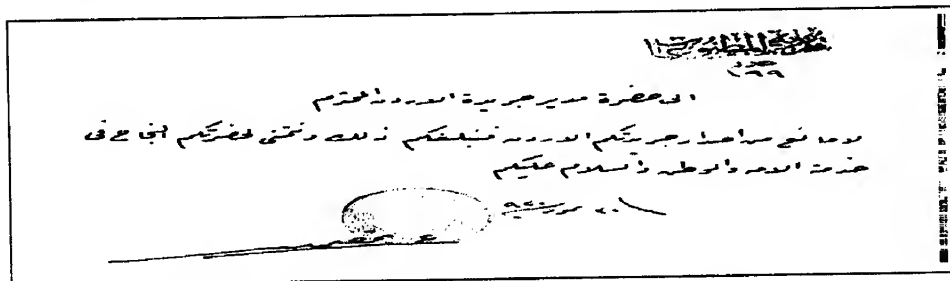 عدد
١٩٩
الى حضرة مدير جريدة الاردن المحترم
لا مانع من اصدار جريدتكم الاردن فنبلغكم ذلك ونتمنى لحضرتكم النجاح فى
خدمة الامه والوطن والسلام عليكم
٢٠ تموز سنة ٩٢٠